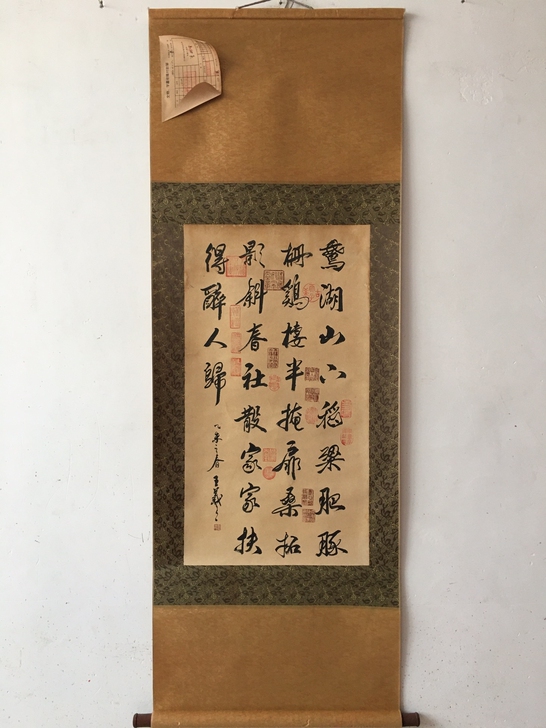 鵞湖山下稻粱肥豚
柵鷄棲半掩扉桑柘
影斜春社散家家扶
得醉人歸
乙未之春 王羲之